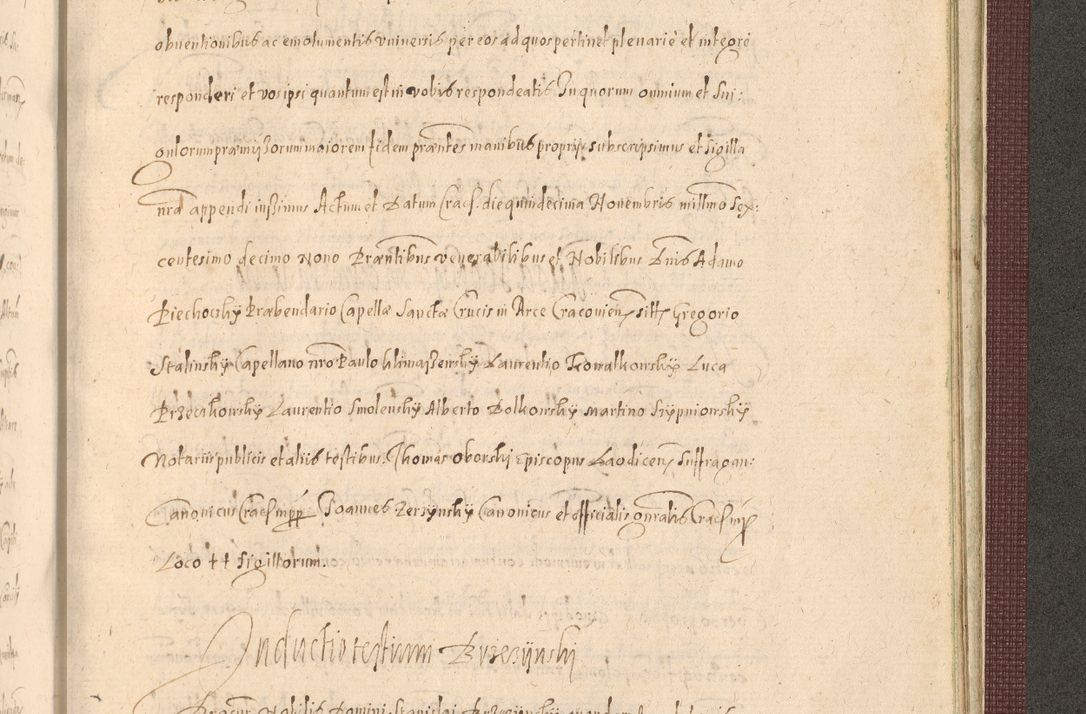 obuentionibus ac emolumentis vniuersis per eos ad quos pertinet plenariè et integrè
responderi et vos ipsi quantum est in vobis respondeatis In quorum omnium et Sin:
gulorum præmissorum maiorem fidem præntes manibus proprijs subscripsimus et Sigilla
nrâ appendi iussimus Actum et Datum Cracf. die quindecima Nouembris millmo Sex:
centesimo decimo Nono Præntibus venerabilibus et Nobilibus Dnis Adamo
Piechoczky Præbendario Capellæ Sanctæ Crucis in Arce Cracouien sitt Gregorio
Stalinsky Capellano nro Paulo Laurentio Kowalkowsky Luca
Przeczkowsky Laurentio Smolensky Alberto Bolkowsky Martino Szypniowsky
Notariis publicis et aliis testibus. Thomas Oborski Episcopus Laodicen Suffragan:
Canonicus Cracf mpp Joannes Zerzynsky Canonicus et officialis gnralis Cracf mpp
Loco ++ Sigillorum.
Inductio testium Brzezynski
Nobilis Domini Stanislai